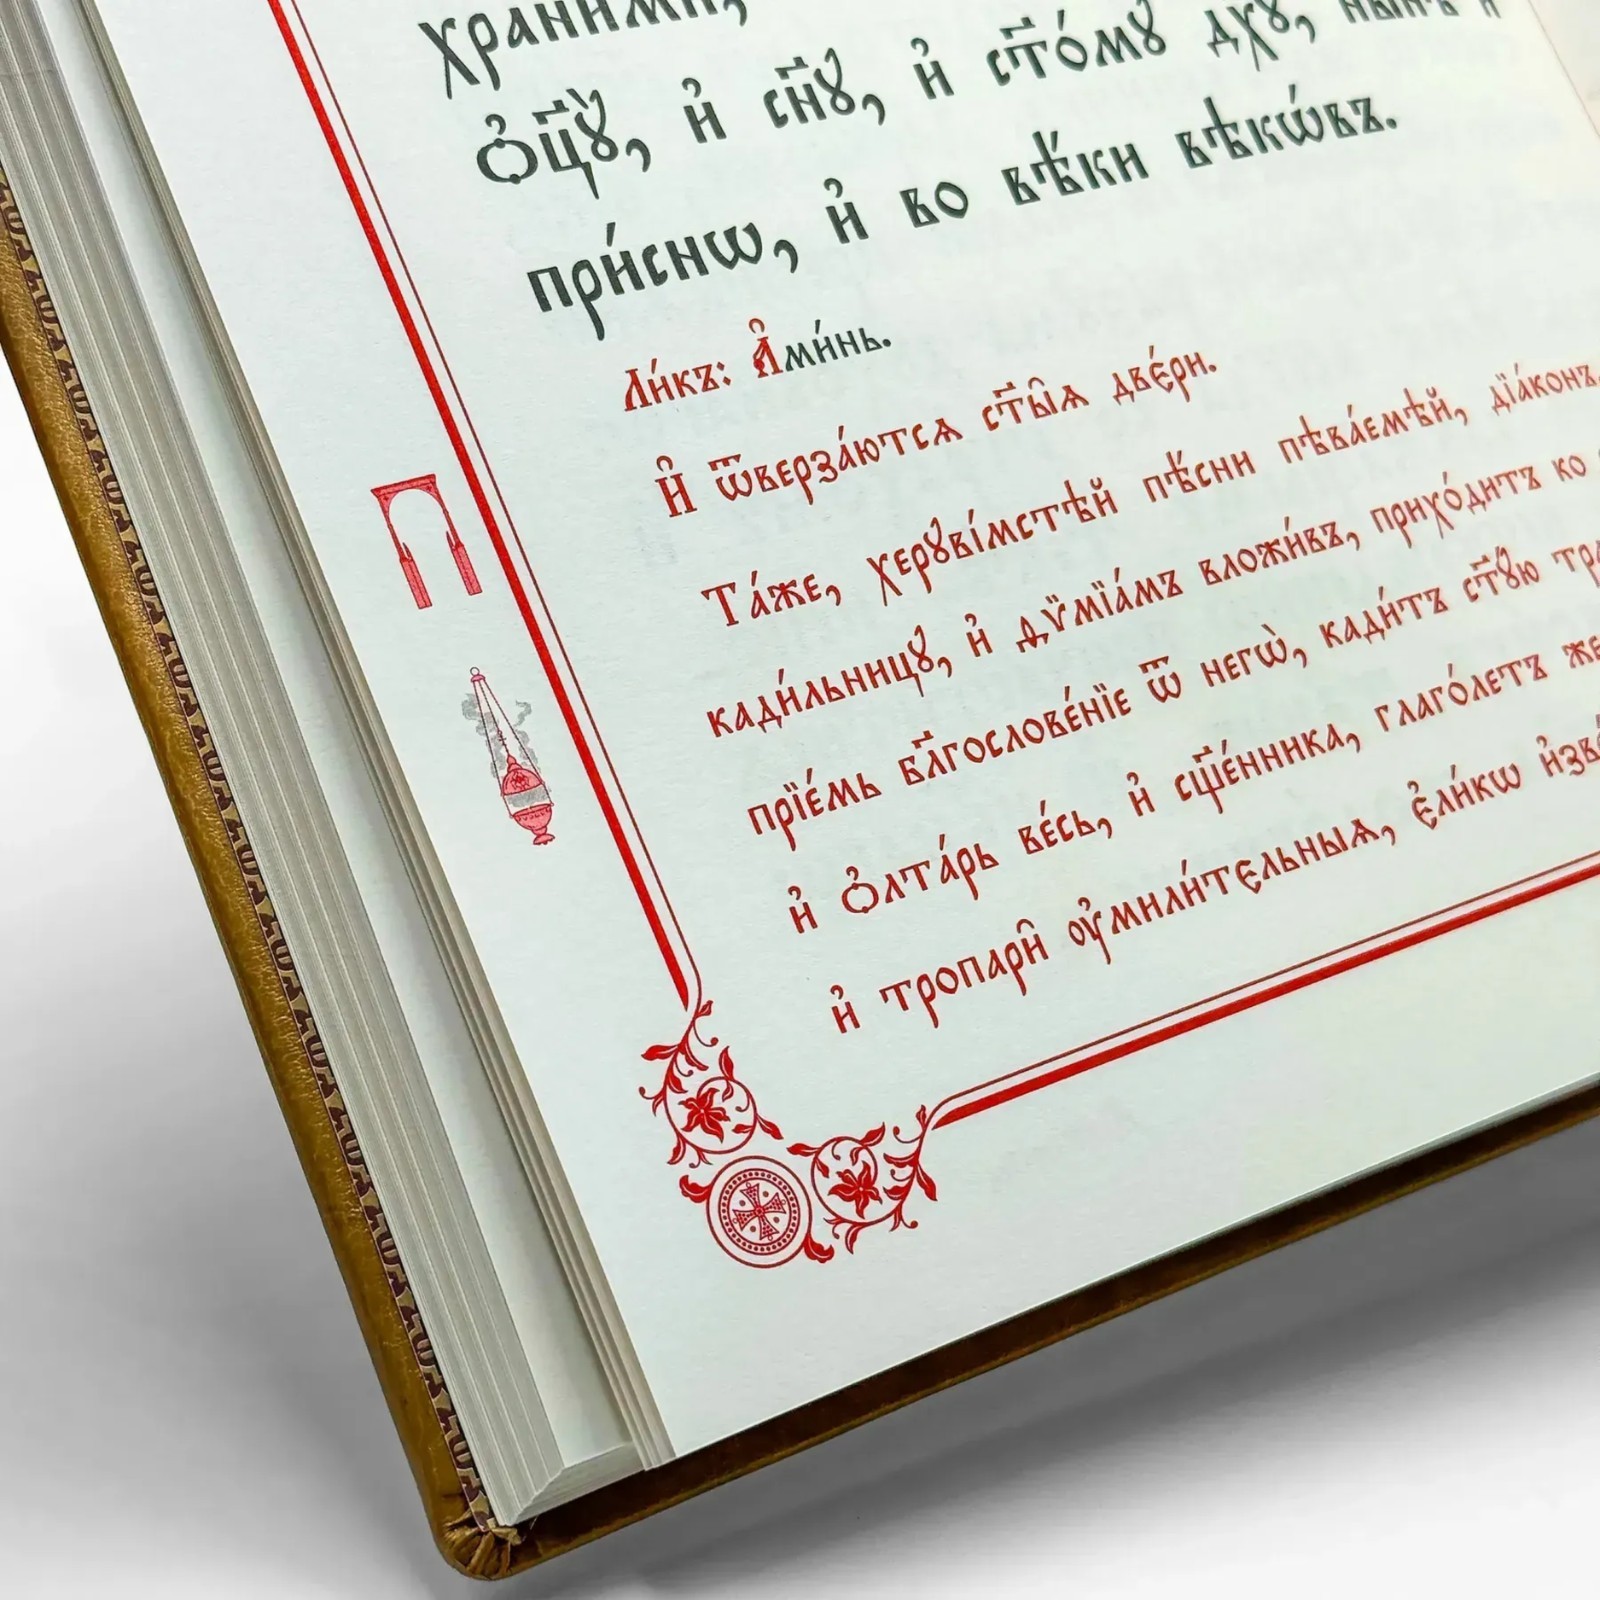 храни́ми,
Ѻ҆ц҃ꙋ̀, и҆ сн҃ꙋ, и҆ ст҃о́мꙋ дх҃ꙋ, ны́нѣ и҆
при́снѡ, и҆ во вѣ́ки вѣкѡ́въ.
Ли́къ: А҆ми́нь.
И҆ ѿверза́ются ст҃ы̑ѧ две́ри.
Та́же, херꙋві́мстѣй пѣ́сни пѣва́емѣй, дїа́конъ,
кади́льницꙋ, и҆ дѷмїа́мъ вложи́въ, прихо́дитъ ко
прїе́мь бл҃гослове́нїе ѿ негѡ̀, кади́тъ ст҃ꙋ́ю
и҆ ѻ҆лта́рь ве́сь, и҆ сщ҃е́нника, глаго́летъ же
и҆ тропари̑ ᲂу҆мили́тєльныѧ, є҆ли́кѡ